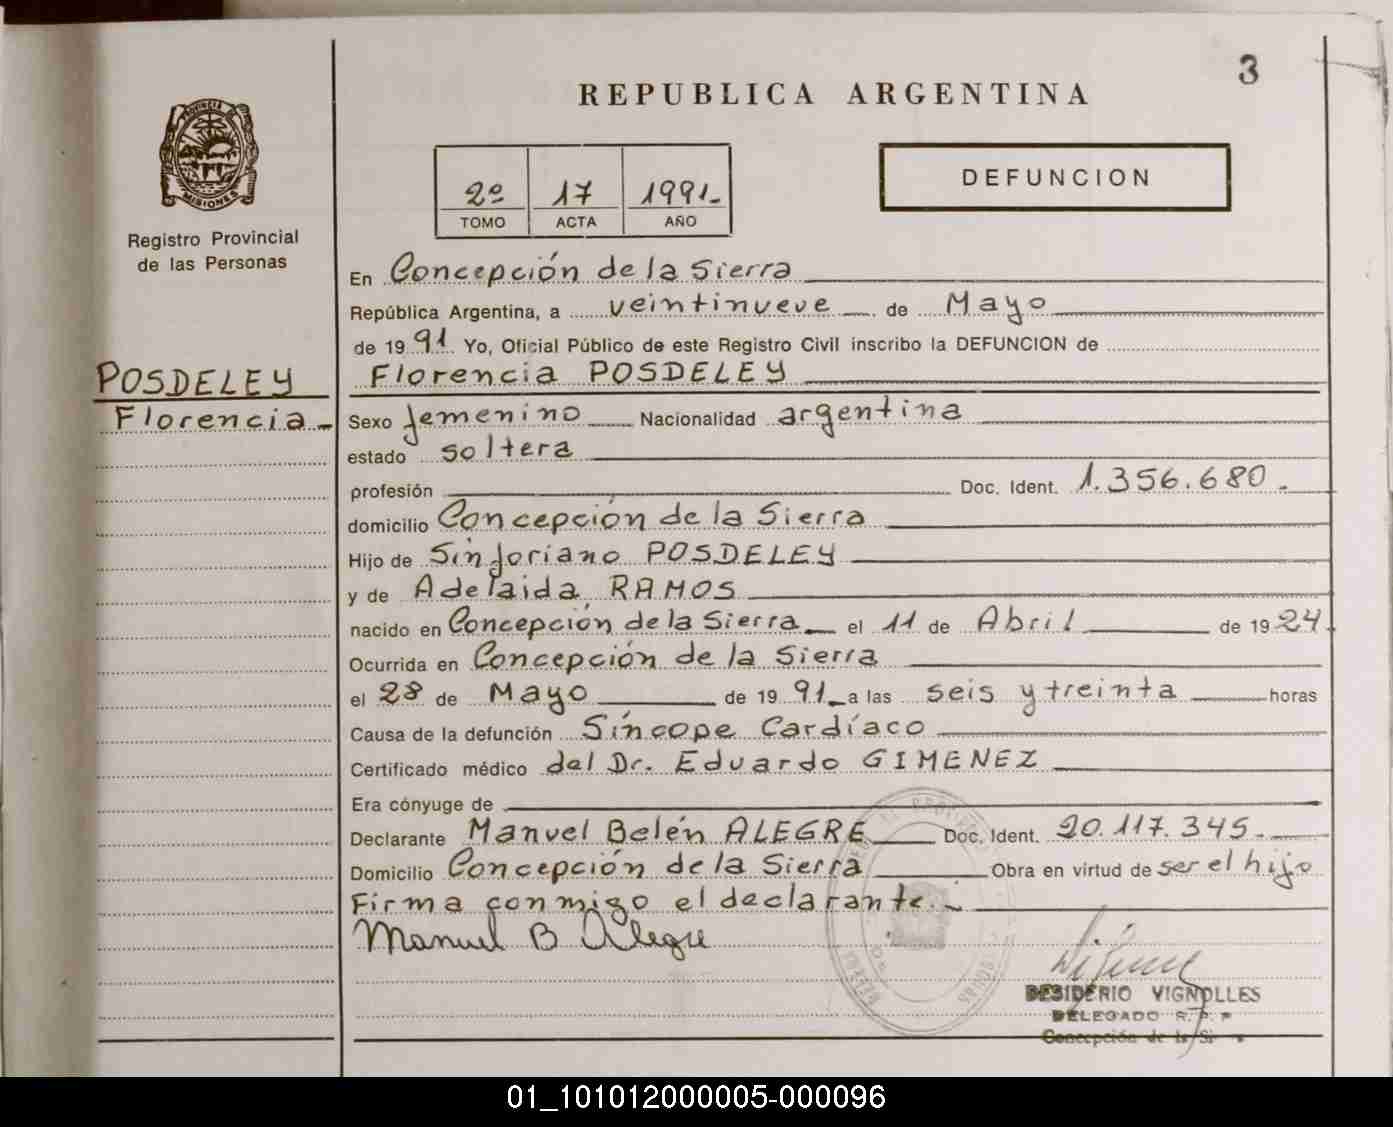 3
REPUBLICA ARGENTINA
PROVINCIA DE
MISIONES
Registro Provincial
de las Personas
2º 17 1991.-
TOMO ACTA AÑO
DEFUNCION
POSDELEY
Florencia.-
En Concepción de la Sierra
República Argentina, a veintinueve de Mayo
de 1991 Yo, Oficial Público de este Registro Civil inscribo la DEFUNCION de
Florencia POSDELEY
Sexo femenino Nacionalidad argentina
estado soltera
profesión Doc. Ident. 1.356.680.-
domicilio Concepción de la Sierra
Hijo de Sinforiano POSDELEY
y de Adelaida RAMOS
nacido en Concepción de la Sierra el 11 de Abril de 1924
Ocurrida en Concepción de la Sierra
el 28 de Mayo de 1991 a las seis y treinta horas
Causa de la defunción Síncope Cardíaco
Certificado médico del Dr. Eduardo GIMENEZ
Era cónyuge de
Declarante Manuel Belén ALEGRE Doc. Ident. 20.117.345.
Domicilio Concepción de la Sierra Obra en virtud de ser el hijo
Firma conmigo el declarante.-
Manuel B Alegre
DESIDERIO VIGNOLLES
DELEGADO R. P. P
Concepción de la Si
01_101012000005-000096